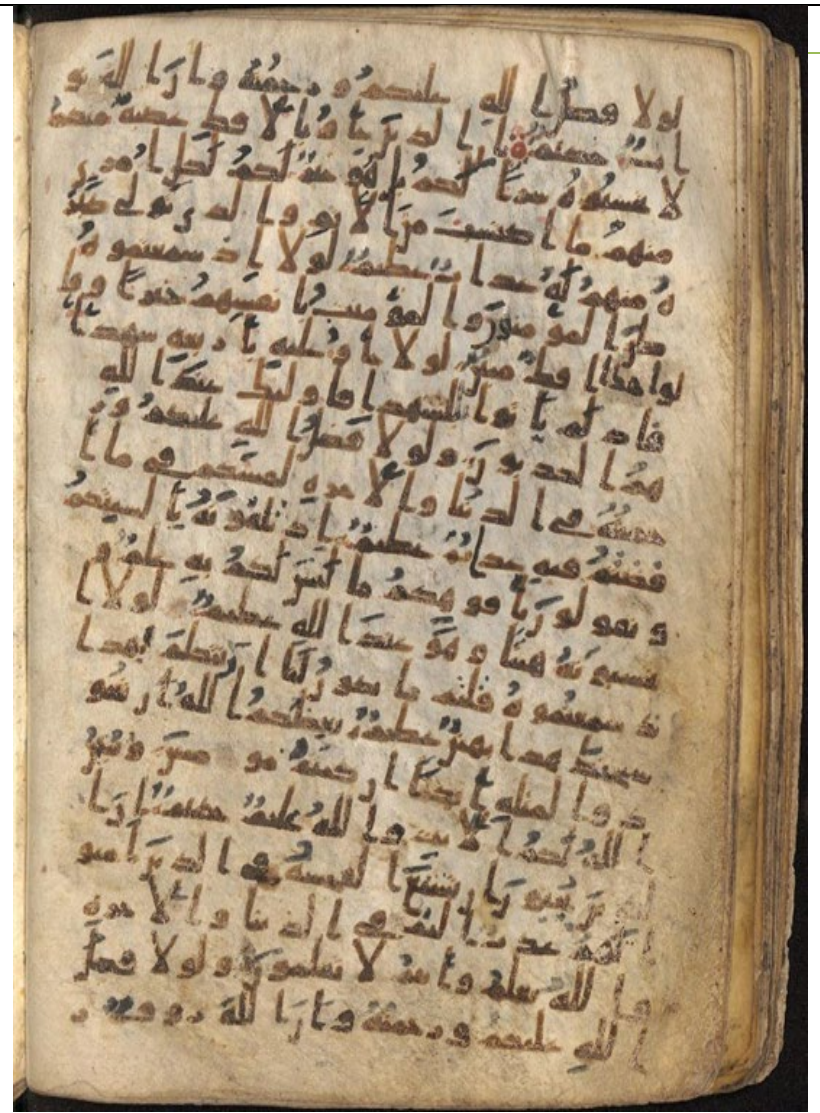 لولا فضل الله عليكم و رحمته وان الله تو
اب حكيم ان الذين جاو بالافك عصبه منكم
لا تحسبوه شرا لكم بل هو خير لكم لكل امرى
منهم ما اكتسب من الاثم والذي تولى كبر
ه منهم له عذاب عظيم لولا اذ سمعتموه
ظن المومنون والمومنت بانفسهم خيرا وقا
لوا هذا افك مبين لولا جاو عليه باربعه شهدا
فاذ لم ياتوا بالشهدا فاوليك عند الله
هم الكذبون ولولا فضل الله عليكم ور
حمته في الدنيا والاخره لمسكم في ما ا
فضتم فيه عذاب عظيم اذ تلقونه بالسنتكم
و تقولون بافوهكم ما ليس لكم به علم و
تحسبونه هينا و هو عند الله عظيم لولا ا
ذ سمعتموه قلتم ما يكون لنا ان نتكلم بهذا
سبحنك هذا بهتن عظيم يعظكم الله ان تعو
دوا لمثله ابدا ان كنتم مومنين ويبين
الله لكم الايت والله عليم حكيم ان ا
لذين يحبون ان تشيع الفحشه في الذين امنو
ا لهم عذاب اليم في الدنيا والاخره
والله يعلم وانتم لا تعلمون ولولا فضل
الله عليكم و رحمته وان الله روف ر